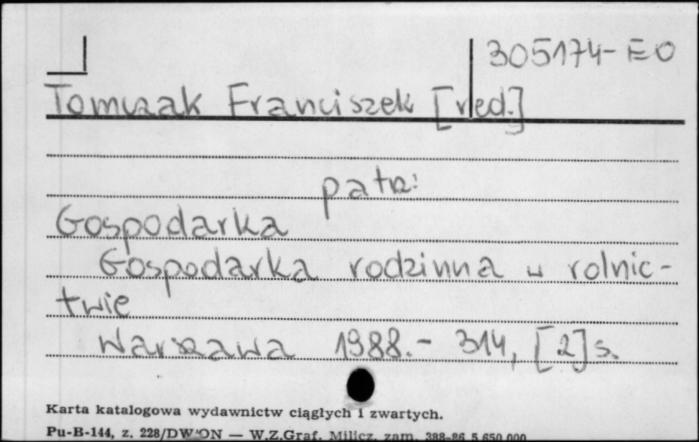 305174-EO
Tomczak Franciszek [red.]
patrz:
Gospodarka
Gospodarka rodzinna w rolnic-
twie
Warszawa 1988.- 314, [2] s.
Karta katalogowa wydawnictw ciągłych i zwartych.
Pu-B-144, z. 228/DWON — W.Z.Graf. Milicz, zam. 388-86 5.650.000